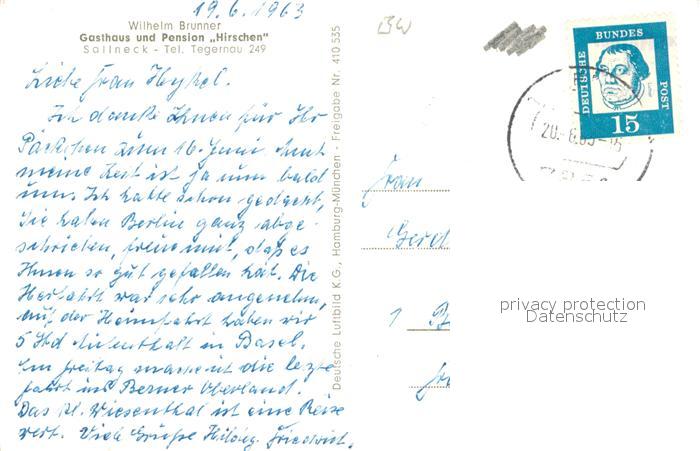 19.6.1963
Wilhelm Brunner
Gasthaus und Pension „Hirschen"
Sallneck - Tel. Tegernau 249
Liebe Frau Heykel.
Ich danke Ihnen für Ihr
Päckchen zum 16. Juni.
meine Zeit ist ja nun bald
um. Ich hatte schon gedacht,
Sie haben Berlin ganz abge-
schrieben, freue mich, daß es
Ihnen so gut gefallen hat. Die
Herfahrt war sehr angenehm,
auf der Heimfahrt haben wir
5 Std Aufenthalt in Basel.
Am Freitag machen wir die letzte
Fahrt ins Berner Oberland.
Das kl. Wiesenthal ist eine Reise
wert. Viele Grüße Hildeg. Friedrich.
Deutsche Luftbild K.G., Hamburg-München - Freigabe Nr. 410 535
BW
DEUTSCHE BUNDES POST
15
20.-6.63-16
Frau
Gerd
1 B
privacy protection
Datenschutz